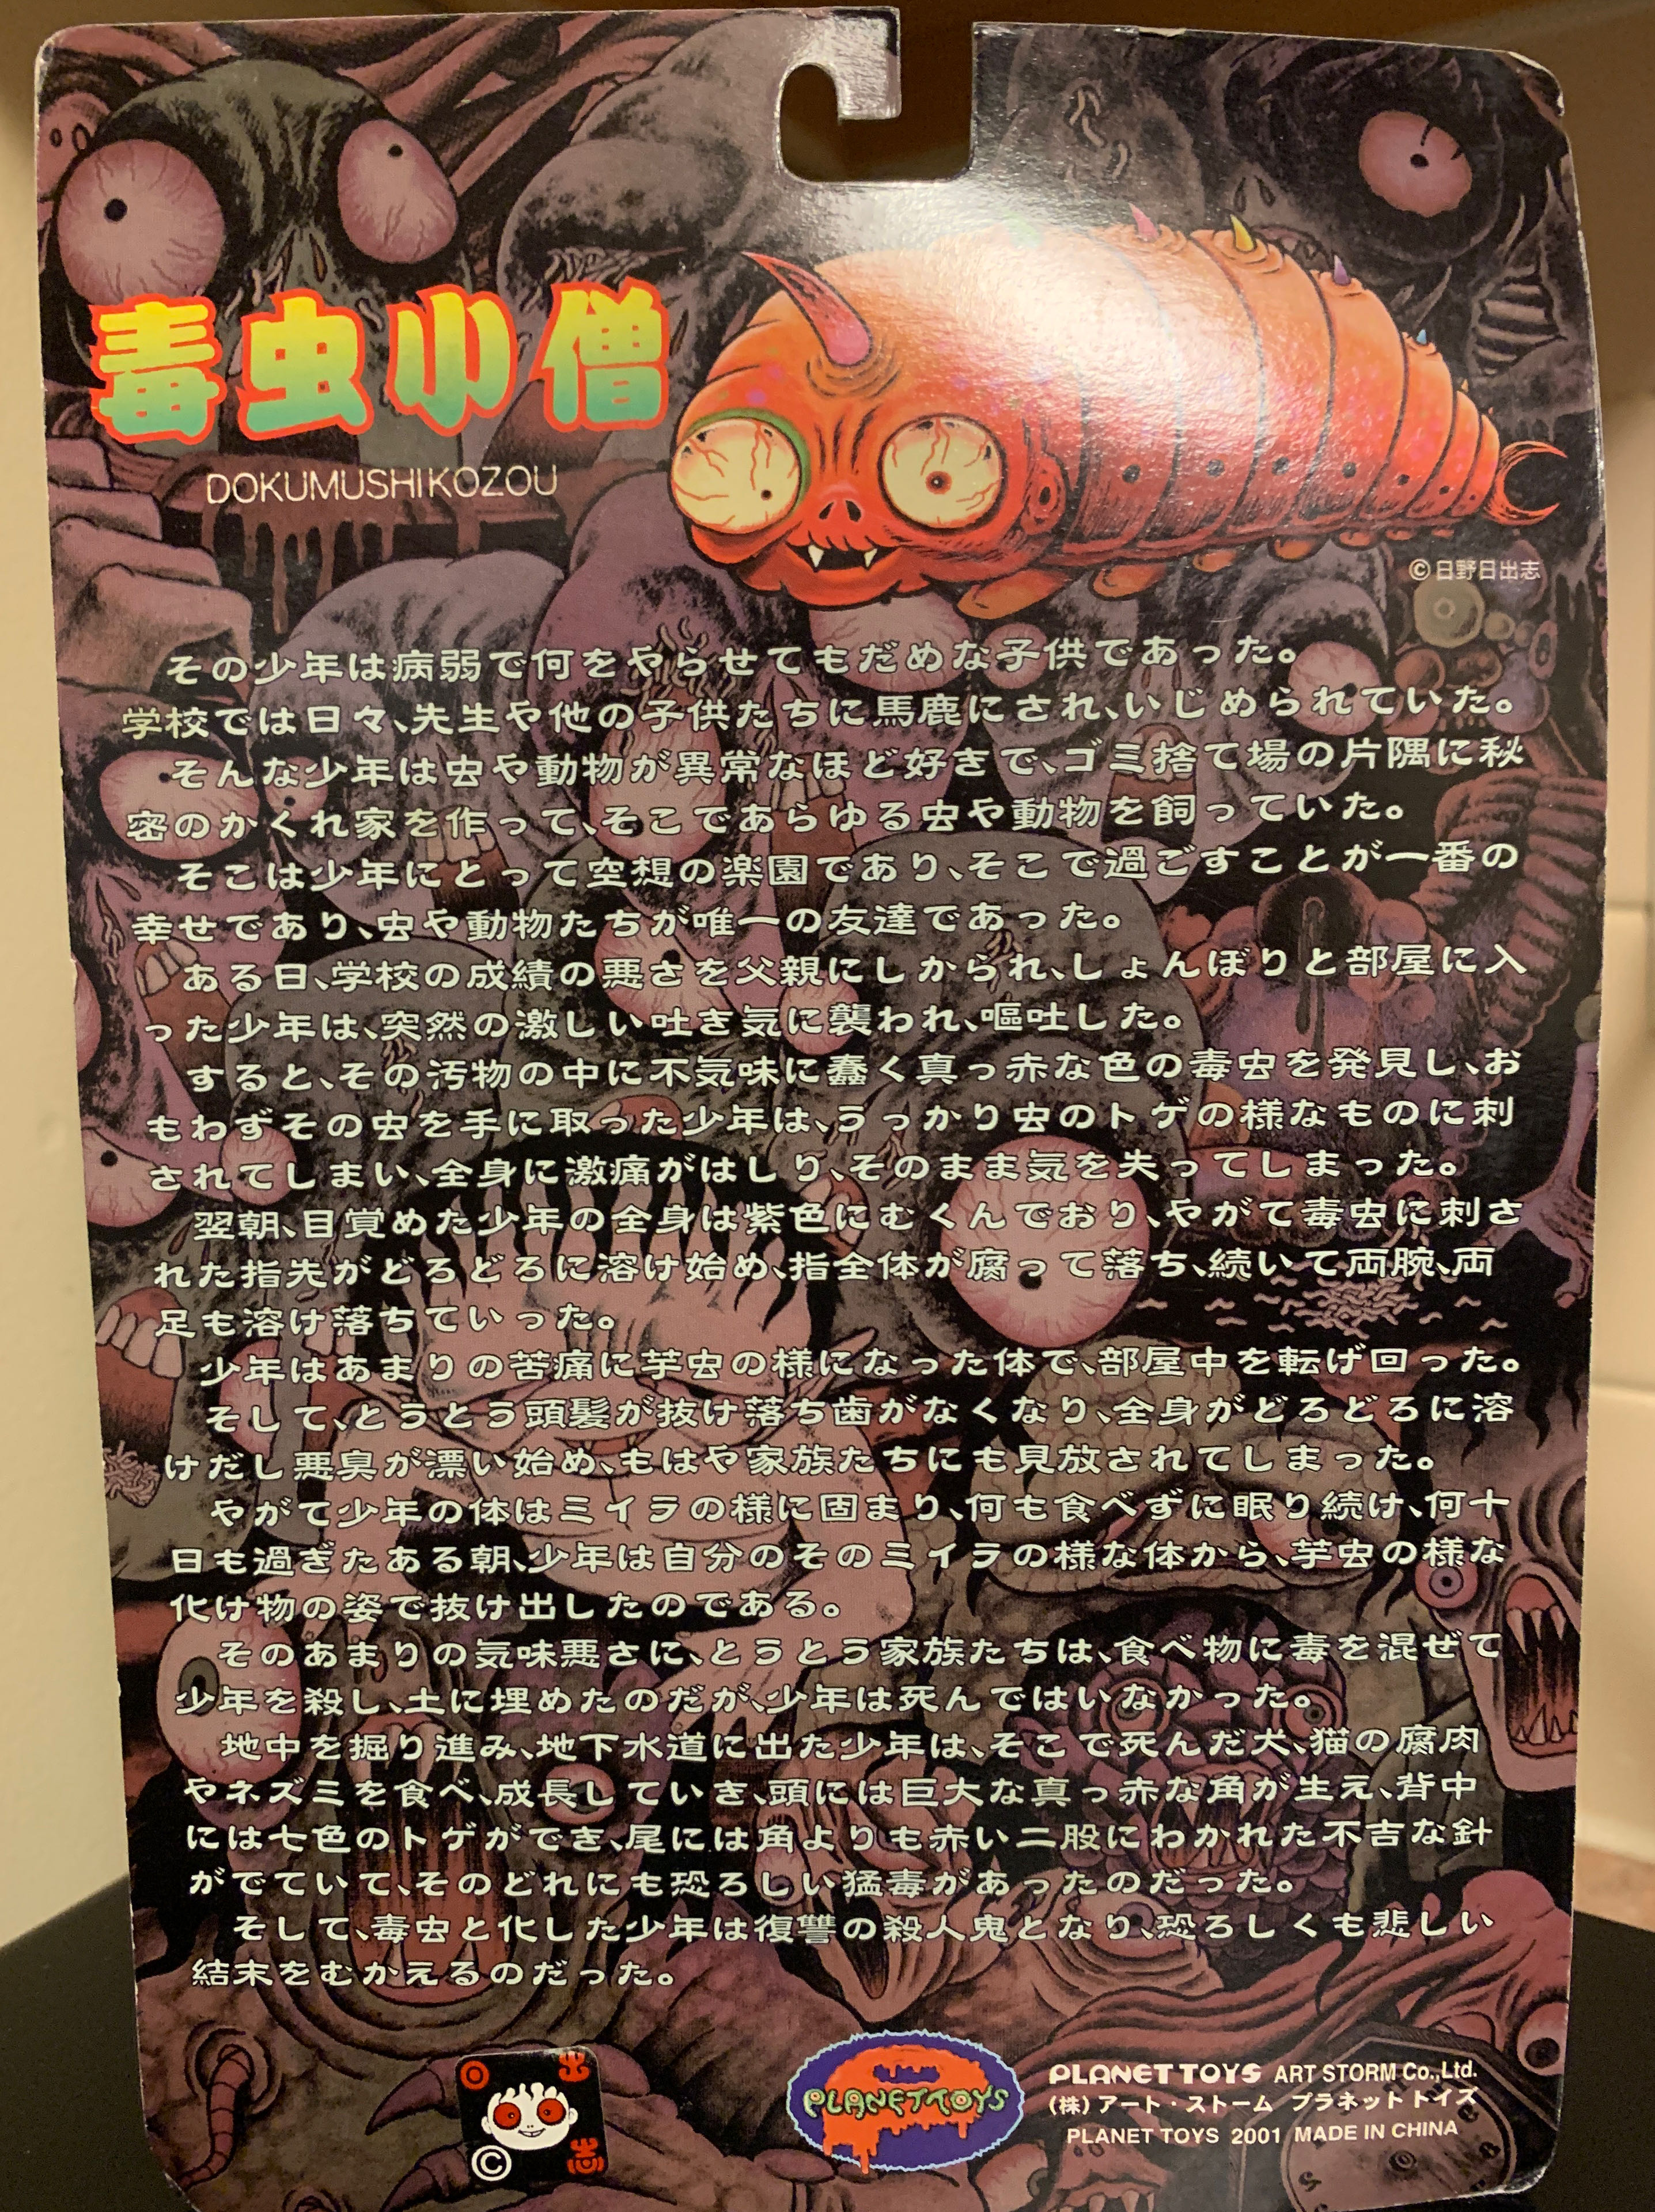 毒虫小僧
DOKUMUSHIKOZOU
©日野日出志
その少年は病弱で何をやらせてもだめな子供であった。
学校では日々、先生や他の子供たちに馬鹿にされ、いじめられていた。
そんな少年は虫や動物が異常なほど好きで、ゴミ捨て場の片隅に秘
密のかくれ家を作って、そこであらゆる虫や動物を飼っていた。
そこは少年にとって空想の楽園であり、そこで過ごすことが一番の
幸せであり、虫や動物たちが唯一の友達であった。
ある日、学校の成績の悪さを父親にしかられ、しょんぼりと部屋に入
った少年は、突然の激しい吐き気に襲われ、嘔吐した。
すると、その汚物の中に不気味に蠢く真っ赤な色の毒虫を発見し、お
もわずその虫を手に取った少年は、うっかり虫のトゲの様なものに刺
されてしまい、全身に激痛がはしり、そのまま気を失ってしまった。
翌朝、目覚めた少年の全身は紫色にむくんでおり、やがて毒虫に刺さ
れた指先がどろどろに溶け始め、指全体が腐って落ち、続いて両腕、両
足も溶け落ちていった。
少年はあまりの苦痛に芋虫の様になった体で、部屋中を転げ回った。
そして、とうとう頭髪が抜け落ち歯がなくなり、全身がどろどろに溶
けだし悪臭が漂い始め、もはや家族たちにも見放されてしまった。
やがて少年の体はミイラの様に固まり、何も食べずに眠り続け、何十
日も過ぎたある朝、少年は自分のそのミイラの様な体から、芋虫の様な
化け物の姿で抜け出したのである。
そのあまりの気味悪さに、とうとう家族たちは、食べ物に毒を混ぜて
少年を殺し、土に埋めたのだが、少年は死んではいなかった。
地中を掘り進み、地下水道に出た少年は、そこで死んだ犬、猫の腐肉
やネズミを食べ、成長していき、頭には巨大な真っ赤な角が生え、背中
には七色のトゲができ、尾には角よりも赤い二股にわかれた不吉な針
がでていて、そのどれにも恐ろしい猛毒があったのだった。
そして、毒虫と化した少年は復讐の殺人鬼となり、恐ろしくも悲しい
結末をむかえるのだった。
日 出
© 志
PLANET TOYS
PLANET TOYS ART STORM Co.,Ltd.
(株)アート・ストーム プラネットトイズ
PLANET TOYS 2001 MADE IN CHINA